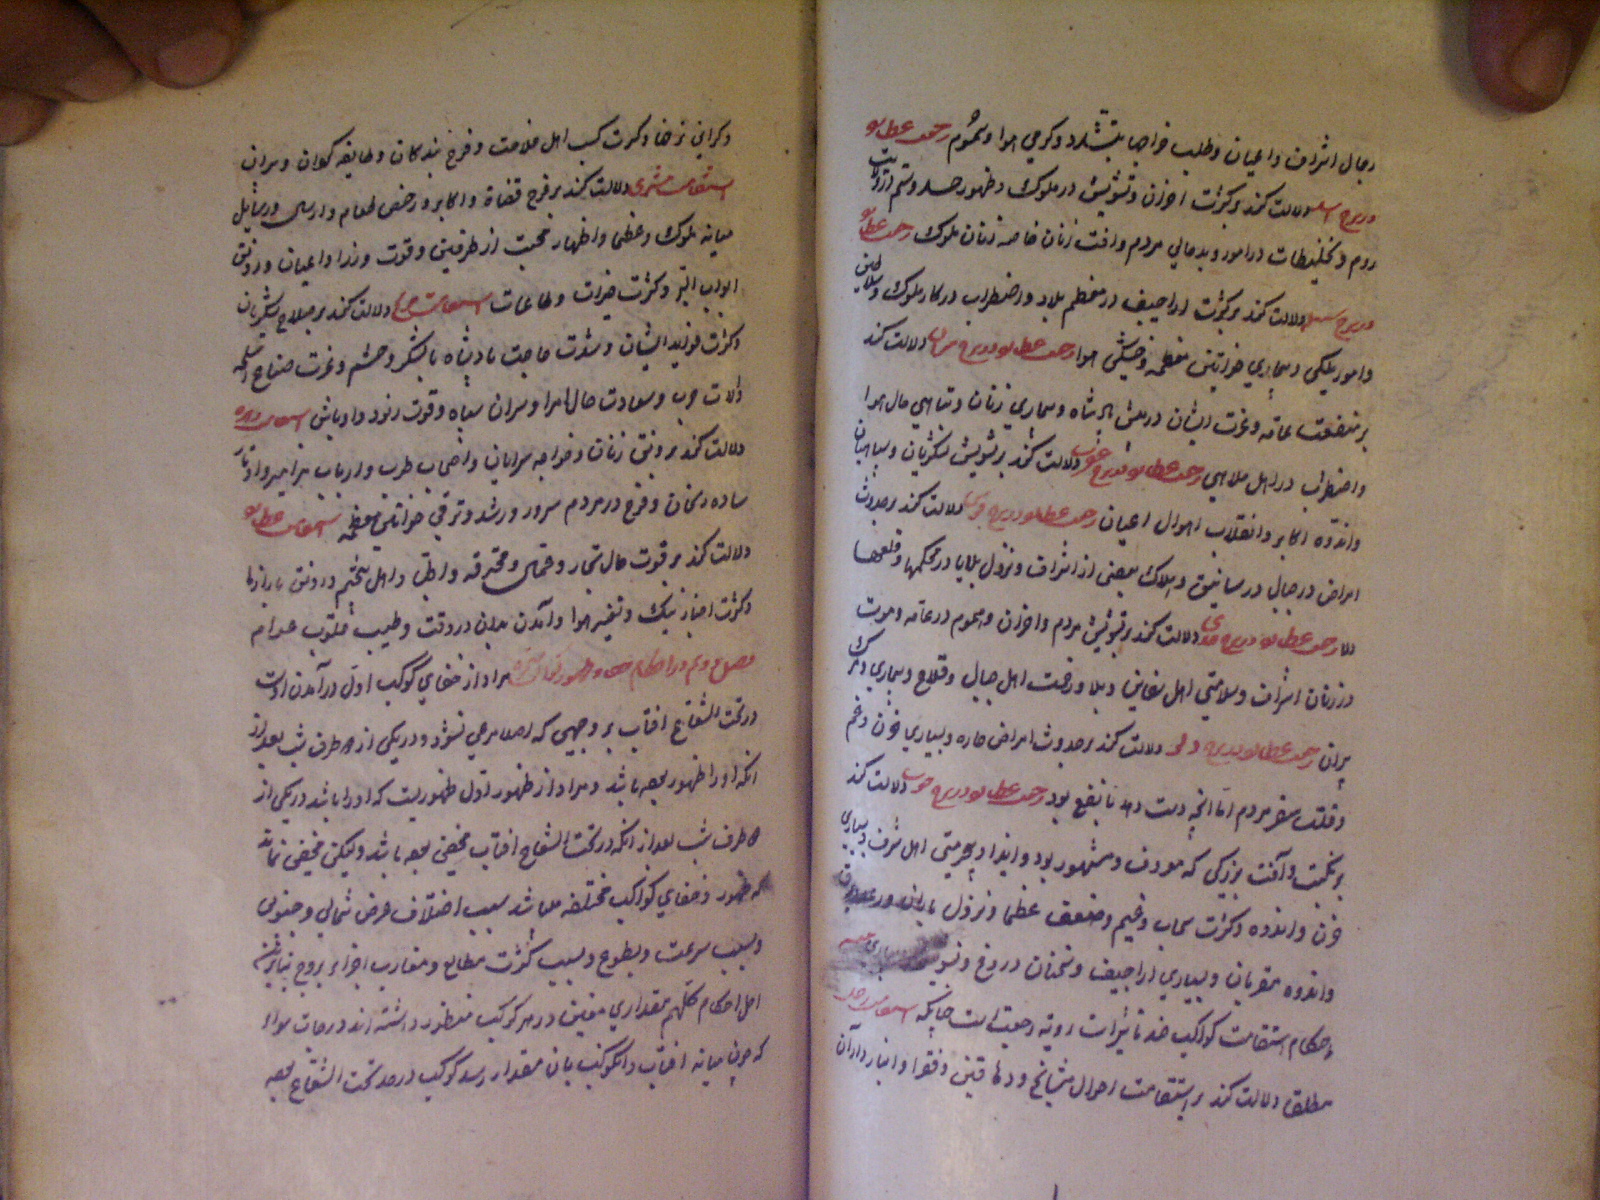 رجال اشراف و اعیان و طلب خراجها بتشدد و کرمی هوا و سموم رجعت عطارد
در برج اسد دلالت کند بر کثرت احزان و تشویش در ملوک و ظهور حسد و ستم در ولایت
روم و تخلیطات در امور و بدحالی مردم و آفت زنان خاصه زنان ملوک رجعت عطارد
در برج سنبله دلالت کند بر کثرت اراجیف در معظم بلاد و اضطراب در کار ملوک و سلاطین
و امور ملکی و بیماری خواتین معظمه و خشکی هوا رجعت عطارد در برج میزان دلالت کند
بر منفعت عامه و عزت ایشان در پیش پادشاه و بیماری زنان و تباهی حال هوا
و اضطراب در اهل ملاهی رجعت عطارد در برج عقرب دلالت کند بر تشویش لشکریان و سپاهیان
و اندوه اکابر و انقلاب احوال اعیان رجعت عطارد در برج قوس دلالت کند بر حدوث
امراض در جبال و رساتیق و هلاک بعضی از اشراف و نزول بلایا در محکمها و قلعها
رجعت عطارد در برج جدی دلالت کند بر تشویش مردم و احزان و هموم در عامه و موت
در زنان اشراف و سلامتی اهل سفاین و بلا و زحمت اهل جبال و قلاع و بیماری و مرک
پیران رجعت عطارد در برج دلو دلالت کند بر حدوث امراض حاره و بسیاری حزن و غم
و قلت سفر مردم اما آنچه دست دهد نافع بود رجعت عطارد در برج حوت دلالت کند
بر نکبت و آفت بزرکی که معروف و مشهور بود و ایذا و بیحرمتی اهل شرف و بسیاری
حزن و اندوه و کثرت سحاب و غیم و ضعف عظما و نزول باران و رعد و برق
و اندوه مقربان و بسیاری اراجیف و سخنان دروغ
و احکام استقامت کواکب ضد تاثیرات رویه رجعت است چنانکه استقامت زحل
مطلقا دلالت کند بر استقامت احوال مشایخ و دهاقین و فقرا و انبارداران
و کرانی نرخها و کثرت کسب اهل فلاحت و فرح بندکان و طایفه کهلان و پیران
استقامت مشتری دلالت کند بر فرح قضاة و اکابر و رخص طعام و ارسال رسایل
میانه ملوک و عظما و اظهار محبت از طرفین و قوت وزرا و اعیان و رونق
ابواب البر و کثرت خیرات و طاعات استقامت مریخ دلالت کند بر صلاح لشکریان
و کثرت فواید ایشان و شدت حاجت پادشاه بلشکر و حشم و عزت صناع اسلحه
و آلات حرب و سعادت حال امرا و سران سپاه و قوت رنود و اوباش استقامت زهره
دلالت کند بر رونق زنان و خواجه سرایان و اصحاب طرب و ارباب مزامیر و اوتار
ساده رخان و فرح در مردم سرور و رشد و ترقی خواتین معظمه استقامت عطارد
دلالت کند بر قوت حال تجار و محترفه و اطبا و اهل تنجیم و رونق بازارها
و کثرت اخبار نیک و تغییر هوا و آمدن باران در وقت و طیب قلوب عوام
فصل دوم در احکام خفا و ظهور مراد از خفای کوکب اول درآمدن اوست
در تحت الشعاع آفتاب بر وجهی که اصلا مرئی نشود در یکی از دو طرف شب بعد از
آنکه او را ظهور بوده باشد و مراد از ظهور اول ظهوریست که او را باشد در یکی از
دو طرف شب بعد از آنکه در تحت الشعاع آفتاب مخفی بوده باشد و لیکن مخفی نماند
که ظهور و خفای کواکب مختلفه میباشد بسبب اختلاف عرض شمالی و جنوبی
و بسبب سرعت و بطوء و بسبب کثرت مطالع و مغارب اجزاء بروج بنابرین
اهل احکام کلهم مقداری معین در هر کوکب منظور داشته اند درجات سواء
که چون میانه آفتاب و آن کوکب بآن مقدار رسد کوکب در حد تحت الشعاع بوده